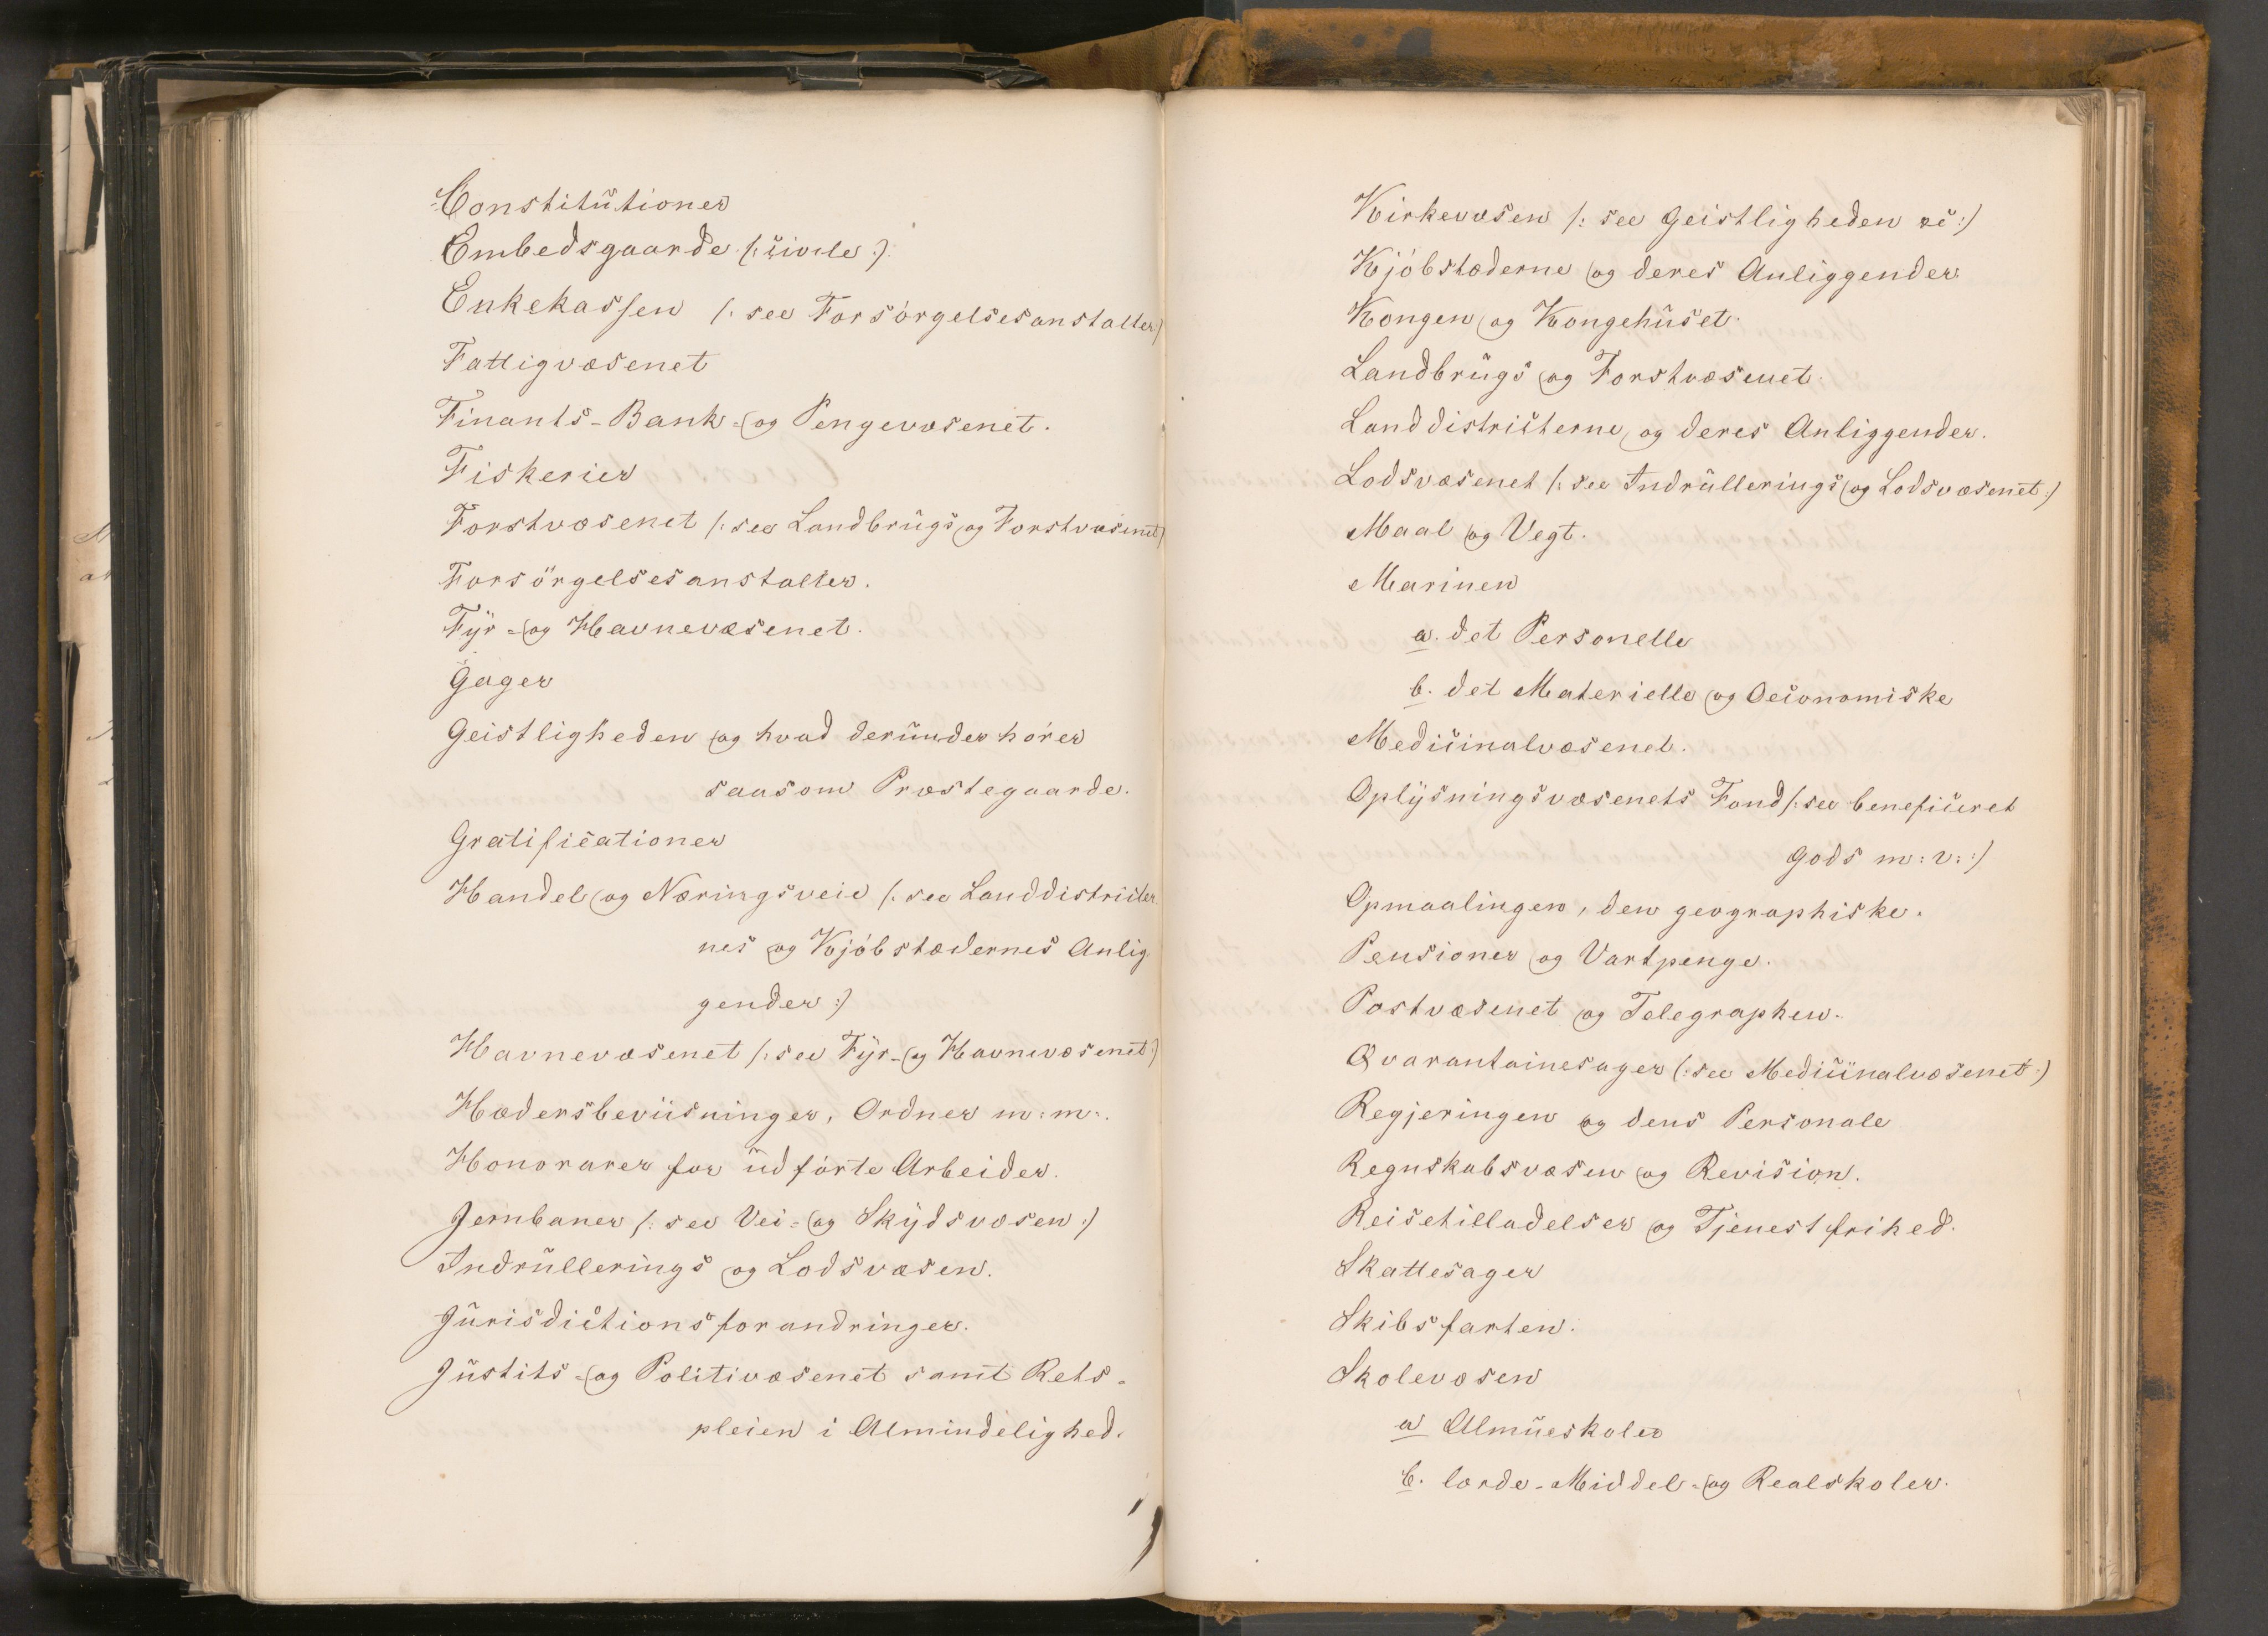 Constitutioner
Embedsgaarde /: civile :/
Enkekassen /: see Forsörgelsesanstalter :/
Fattigvæsenet
Finants- Bank- og Pengevæsenet.
Fiskerier
Forstvæsenet /: see Landbrugs og Forstvæsenet :/
Forsörgelsesanstalter.
Fyr- og Havnevæsenet.
Gager
Geistligheden og hvad derunder hörer
saasom Præstegaarde.
Gratificationer
Handel og Næringsveie /: see Landdistricter
nes og Kjöbstædernes Anlig
gender :/
Havnevæsenet /: see Fyr- og Havnevæsenet :/
Hædersbeviisninger, Ordner m: m:.
Honorarer for udförte Arbeider.
Jernbaner /: see Vei- og Skydsvæsen :/
Indrullerings og Lodsvæsen.
Jurisdictionsforandringer.
Justits- og Politivæsenet samt Rets-
pleien i Almindelighed.
Kirkevæsen /: see Geistligheden &c :/
Kjöbstæderne og deres Anliggender
Kongen og Kongehuset.
Landbrugs og Forstvæsenet.
Landdistricterne og deres Anliggender.
Lodsvæsenet /: see Indrullerings og Lodsvæsenet :/
Maal og Vegt.
Marinen
a. det Personelle
b. det Materielle og Oeconomiske
Medicinalvæsenet.
Oplysningsvæsenets Fond /: see beneficeret
Gods m: v: :/
Opmaalingen, den geographiske.
Pensioner og Vartpenge.
Postvæsenet og Telegraphen.
Qvarantainesager /: see Medicinalvæsenet :/
Regjeringen og dens Personale
Regnskabsvæsen og Revision.
Reisetilladelser og Tjenestfrihed.
Skattesager
Skibsfarten.
Skolevæsen
a Almueskoler
b. lærde- Middel- og Realskoler.